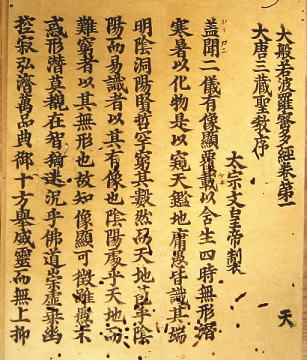 大般若波羅蜜多經卷第一　天
大唐三藏聖教序
太宗文皇帝製
蓋聞二儀有像顯覆載以含生四時無形潛
寒暑以化物是以窺天鑑地庸愚皆識其端
明陰洞陽賢哲罕窮其數然而天地苞乎陰
陽而易識者以其有像也陰陽處乎天地而
難窮者以其無形也故知像顯可徵雖愚不
惑形潛莫覩在智猶迷況乎佛道崇虛乘幽
控寂弘濟萬品典御十方舉威靈而無上抑